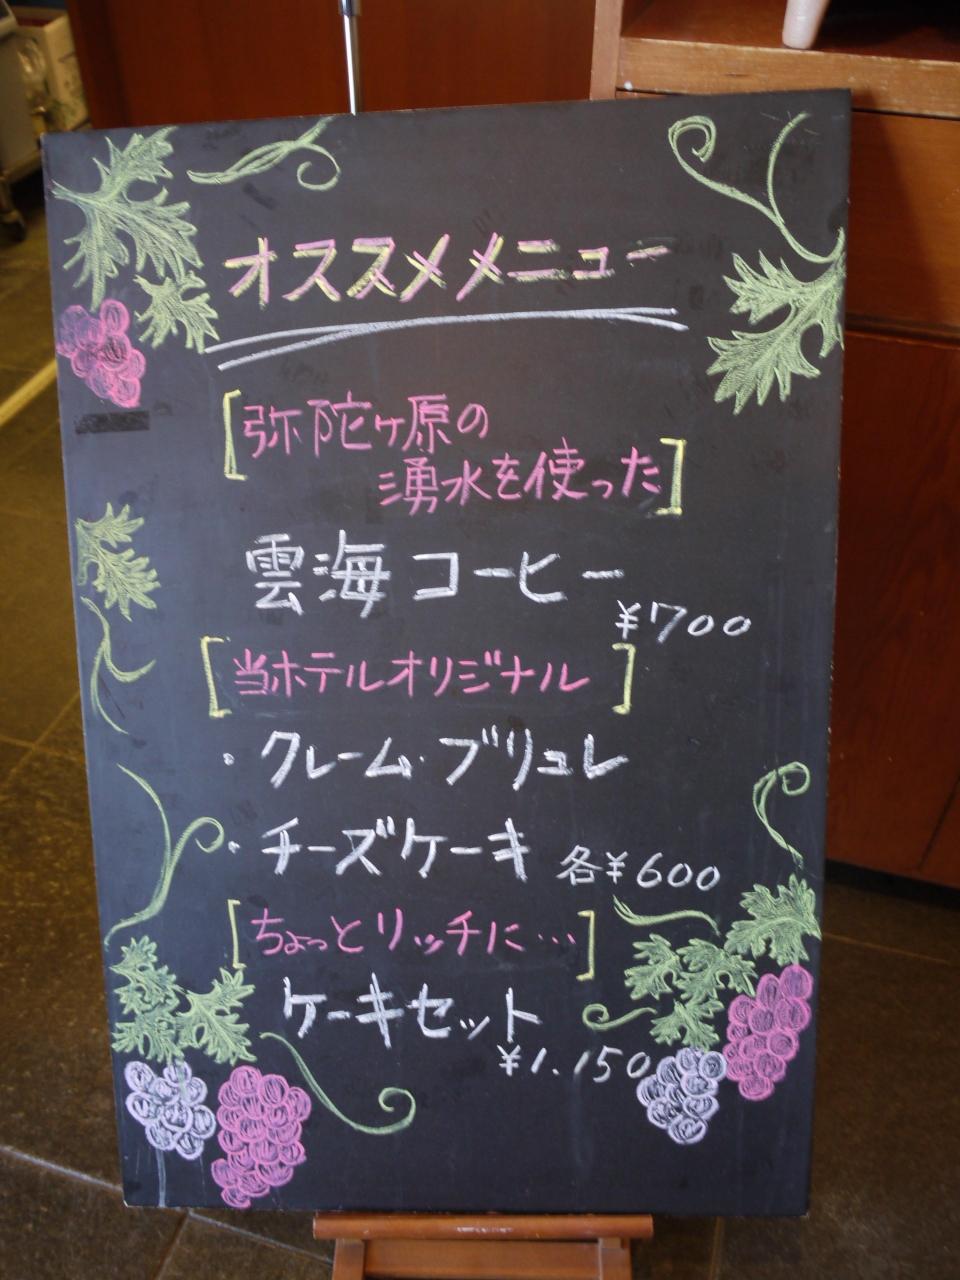 オススメメニュー
[弥陀ヶ原の
湧水を使った]
雲海コーヒー
¥700
[当ホテルオリジナル]
・クレーム・ブリュレ
・チーズケーキ 各¥600
[ちょっとリッチに…]
ケーキセット
¥1.150